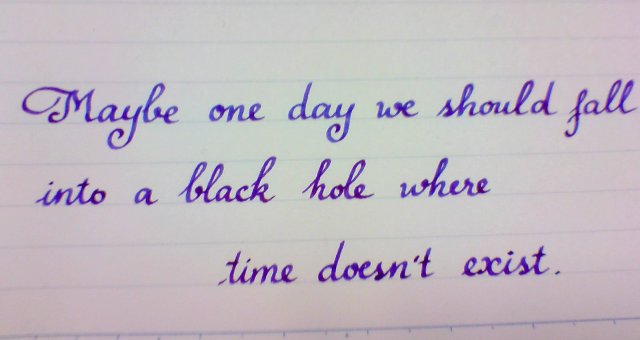 Maybe one day we should fall
into a black hole where
time doesn't exist.